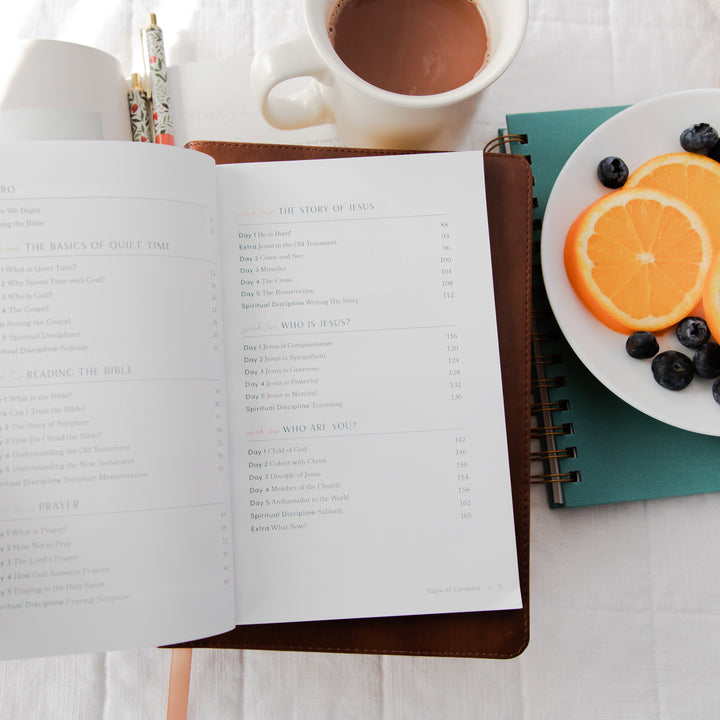 RO
re We Begin
ng the Bible
THE BASICS OF QUIET TIME
1 What is Quiet Time?
2 Why Spend Time with God?
3 Who is God?
4 The Gospel
Seeing the Gospel
5 Spiritual Disciplines
Spiritual Discipline Solitude
READING THE BIBLE
1 What is the Bible?
Can I Trust the Bible?
2 The Story of Scripture
3 How Do I Read the Bible?
4 Understanding the Old Testament
5 Understanding the New Testament
piritual Discipline Scripture Memorization
PRAYER
y 1 What is Prayer?
y 2 How Not to Pray
y 3 The Lord's Prayer
y 4 How God Answers Prayers
y 5 Praying in the Holy Spirit
piritual Discipline Praying Scripture
week four THE STORY OF JESUS
Day 1 He is Born! 88
Extra Jesus in the Old Testament 93
Day 2 Come and See 96
Day 3 Miracles 100
Day 4 The Cross 104
Day 5 The Resurrection 108
Spiritual Discipline Writing His Story 112
week five WHO IS JESUS?
Day 1 Jesus is Compassionate 116
Day 2 Jesus is Sympathetic 120
Day 3 Jesus is Generous 124
Day 4 Jesus is Powerful 128
Day 5 Jesus is Merciful 132
Spiritual Discipline Testimony 136
week six WHO ARE YOU?
Day 1 Child of God 142
Day 2 Coheir with Christ 146
Day 3 Disciple of Jesus 150
Day 4 Member of the Church 154
Day 5 Ambassador to the World 158
Spiritual Discipline Sabbath 162
Extra What Now? 165
Table of Contents / 5